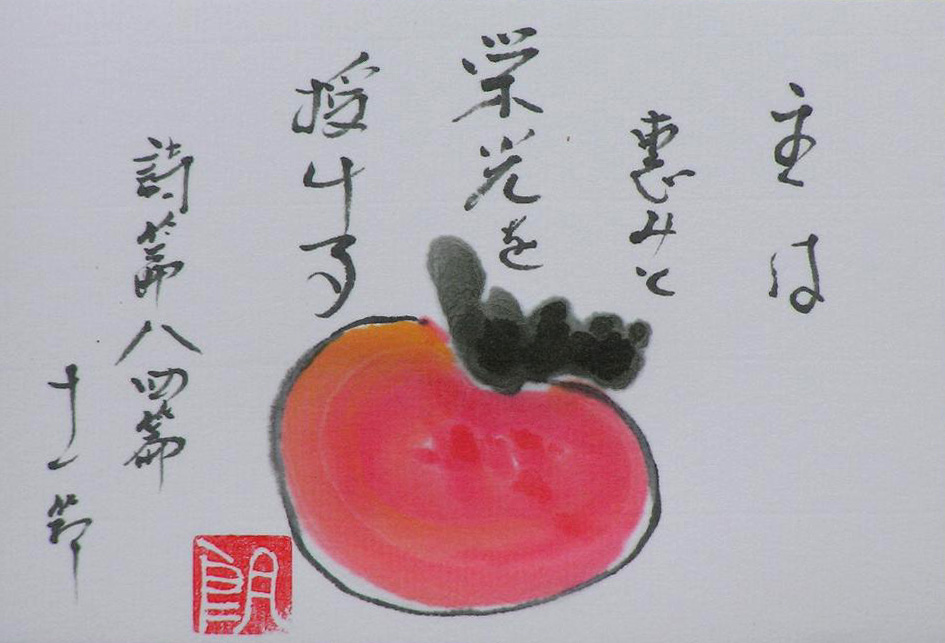 主は
恵みと
栄光を
授ける
詩篇八四篇
十一節
朗